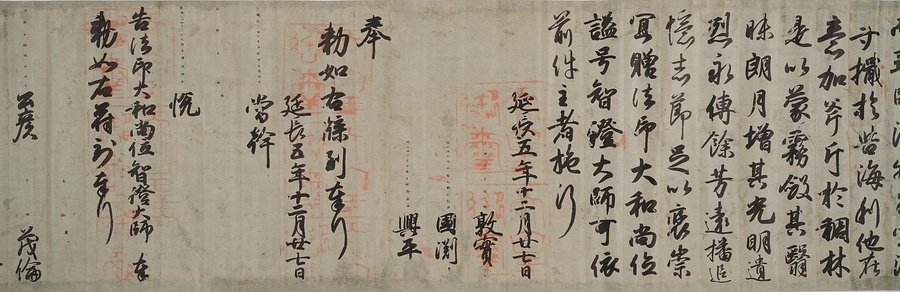 檝於苦海利他在
意加斧斤於稠林
是以蒙霧斂其翳
昧朗月增其光明遺
烈永傳餘芳遠播追
憶志節足以褒崇
宜贈法印大和尚位
諡号智證大師可依
前件主者施行
延長五年十二月廿七日
敦實
國淵
興平
奉
勅如右牒到奉行
延長五年十二月廿七日
當幹
悦
告法印大和尚位智證大師奉
勅如右符到奉行
茂倫